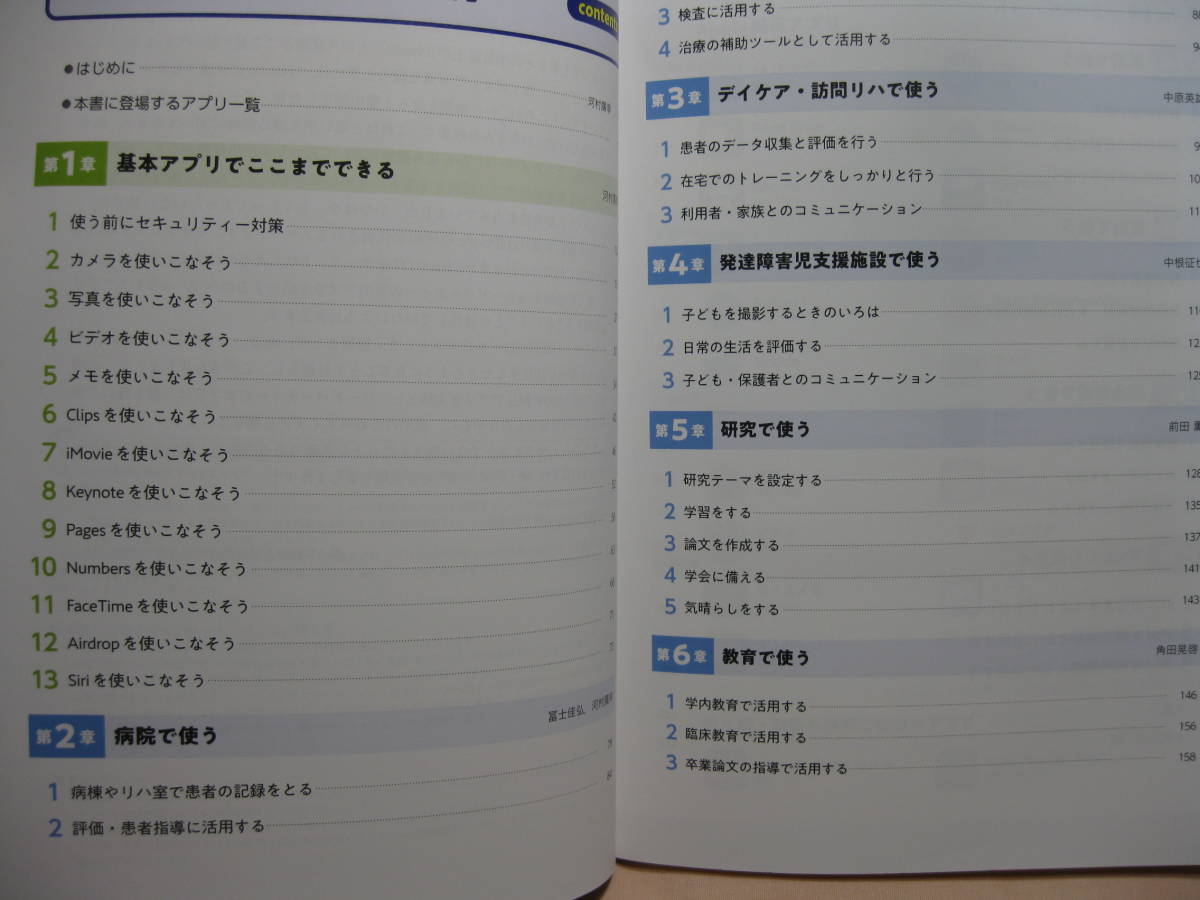 contents
●はじめに
●本書に登場するアプリ一覧
第1章 基本アプリでここまでできる
1 使う前にセキュリティー対策
2 カメラを使いこなそう
3 写真を使いこなそう
4 ビデオを使いこなそう
5 メモを使いこなそう
6 Clipsを使いこなそう
7 iMovieを使いこなそう
8 Keynoteを使いこなそう
9 Pagesを使いこなそう
10 Numbersを使いこなそう
11 FaceTimeを使いこなそう
12 Airdropを使いこなそう
13 Siriを使いこなそう
第2章 病院で使う 冨士佳弘、河村廣幸
1 病棟やリハ室で患者の記録をとる
2 評価・患者指導に活用する 84
3 検査に活用する
4 治療の補助ツールとして活用する
第3章 デイケア・訪問リハで使う 中原英雄
1 患者のデータ収集と評価を行う
2 在宅でのトレーニングをしっかりと行う
3 利用者・家族とのコミュニケーション
第4章 発達障害児支援施設で使う 中根征也
1 子どもを撮影するときのいろは
2 日常の生活を評価する
3 子ども・保護者とのコミュニケーション 125
第5章 研究で使う 前田 薫
1 研究テーマを設定する 128
2 学習をする 135
3 論文を作成する 137
4 学会に備える 141
5 気晴らしをする 143
第6章 教育で使う 角田晃啓
1 学内教育で活用する 146
2 臨床教育で活用する 156
3 卒業論文の指導で活用する 158